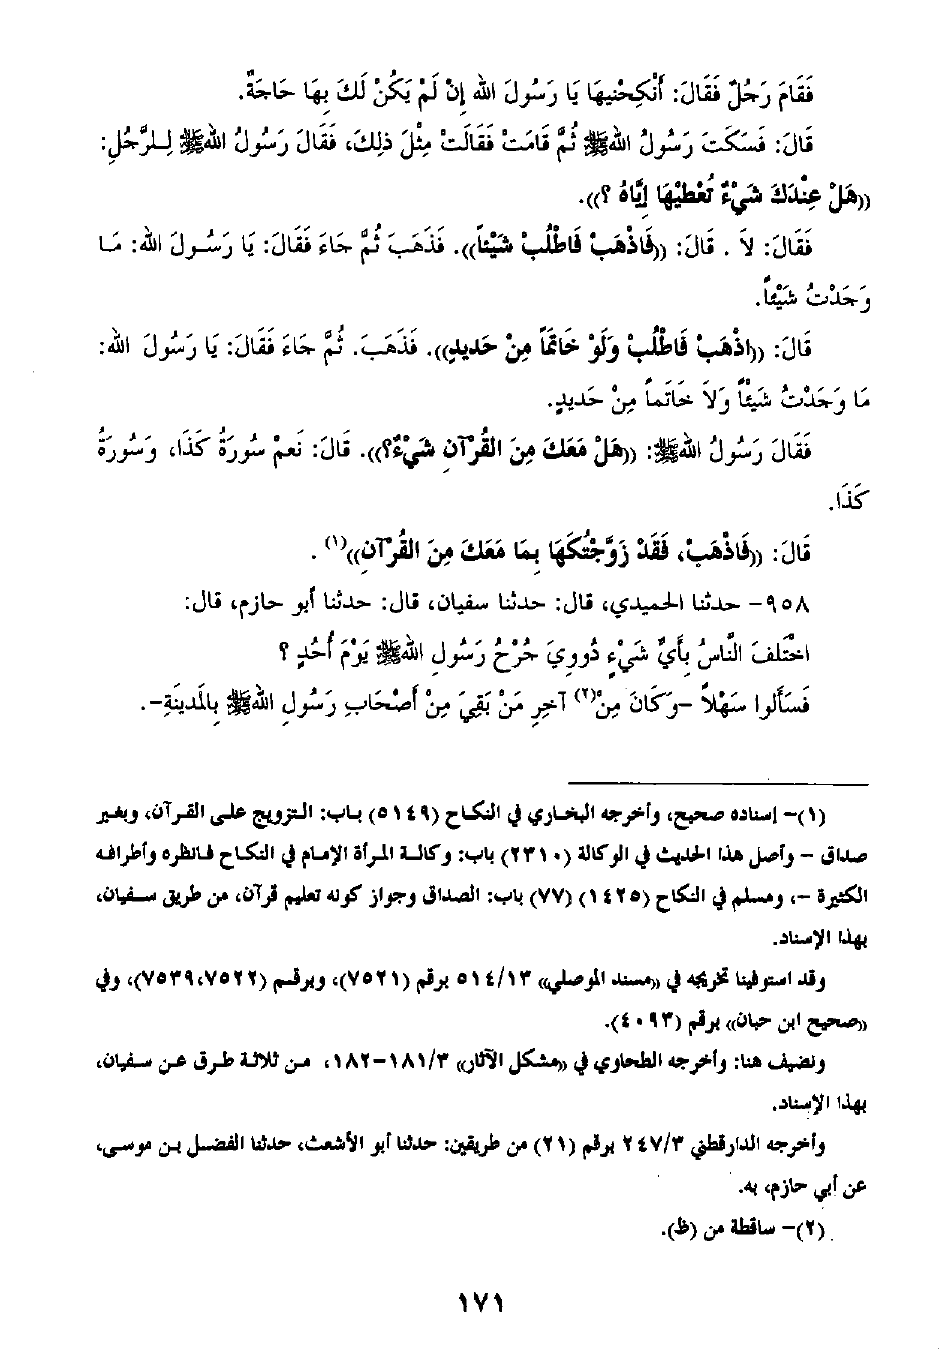 فَقَامَ رَجُلٌ فَقَالَ: أَنْكِحْنِيهَا يَا رَسُولَ اللهِ إِنْ لَمْ يَكُنْ لَكَ بِهَا حَاجَةٌ.
قَالَ: فَسَكَتَ رَسُولُ اللهِ ﷺ ثُمَّ قَامَتْ فَقَالَتْ مِثْلَ ذلِكَ، فَقَالَ رَسُولُ اللهِ ﷺ لِلرَّجُلِ:
((هَلْ عِنْدَكَ شَيْءٌ تُعْطِيْهَا إِيَّاهُ ؟)).
فَقَالَ: لاَ . قَالَ: ((فَاذْهَبْ فَاطْلُبْ شَيْئاً)). فَذَهَبَ ثُمَّ جَاءَ فَقَالَ: يَا رَسُولَ اللهِ: مَا
وَجَدْتُ شَيْئاً.
قَالَ: ((اذْهَبْ فَاطْلُبْ وَلَوْ خَاتَمَاً مِنْ حَدِيدٍ)). فَذَهَبَ. ثُمَّ جَاءَ فَقَالَ: يَا رَسُولَ اللهِ:
مَا وَجَدْتُ شَيْئاً وَلاَ خَاتَماً مِنْ حَدِيدٍ.
فَقَالَ رَسُولُ اللهِ ﷺ: ((هَلْ مَعَكَ مِنَ القُرْآنِ شَيْءٌ؟)). قَالَ: نَعَمْ سُورَةُ كَذَا، وَسُورَةُ
كَذَا.
قَالَ: ((فَاذْهَبْ، فَقَدْ زَوَّجْتُكَهَا بِمَا مَعَكَ مِنَ القُرْآنِ))(١) .
٩٥٨- حدثنا الحميدي، قال: حدثنا سفيان، قال: حدثنا أبو حازم، قال:
اخْتَلَفَ النَّاسُ بِأَيِّ شَيْءٍ دُووِيَ جُرْحُ رَسُولِ اللهِ ﷺ يَوْمَ أُحُدٍ ؟
فَسَأَلُوا سَهْلاً -وَكَانَ مِنْ(٢) آخِرِ مَنْ بَقِيَ مِنْ أَصْحَابِ رَسُولِ اللهِ ﷺ بِالْمَدِينَةِ-.
(١)- إسناده صحيح، وأخرجه البخاري في النكاح (٥١٤٩) باب: التزويج على القرآن، وبغير
صداق - وأصل هذا الحديث في الوكالة (٢٣١٠) باب: وكالة المرأة الإمام في النكاح فانظره وأطرافه
الكثيرة -، ومسلم في النكاح (١٤٢٥) (٧٧) باب: الصداق وجواز كونه تعليم قرآن، من طريق سفيان،
بهذا الإسناد.
وقد استوفينا تخريجه في ((مسند الموصلي)) ٥١٤/١٣ برقم (٧٥٢١)، وبرقم (٧٥٢٢،٧٥٣٩)، وفي
((صحيح ابن حبان)) برقم (٤٠٩٣).
ونضيف هنا: وأخرجه الطحاوي في ((مشكل الآثار)) ١٨١/٣-١٨٢، من ثلاثة طرق عن سفيان،
بهذا الإسناد.
وأخرجه الدارقطني ٢٤٧/٣ برقم (٢١) من طريقين: حدثنا أبو الأشعث، حدثنا الفضل بن موسى،
عن أبي حازم، به.
(٢)- ساقطة من (ظ).
١٧١